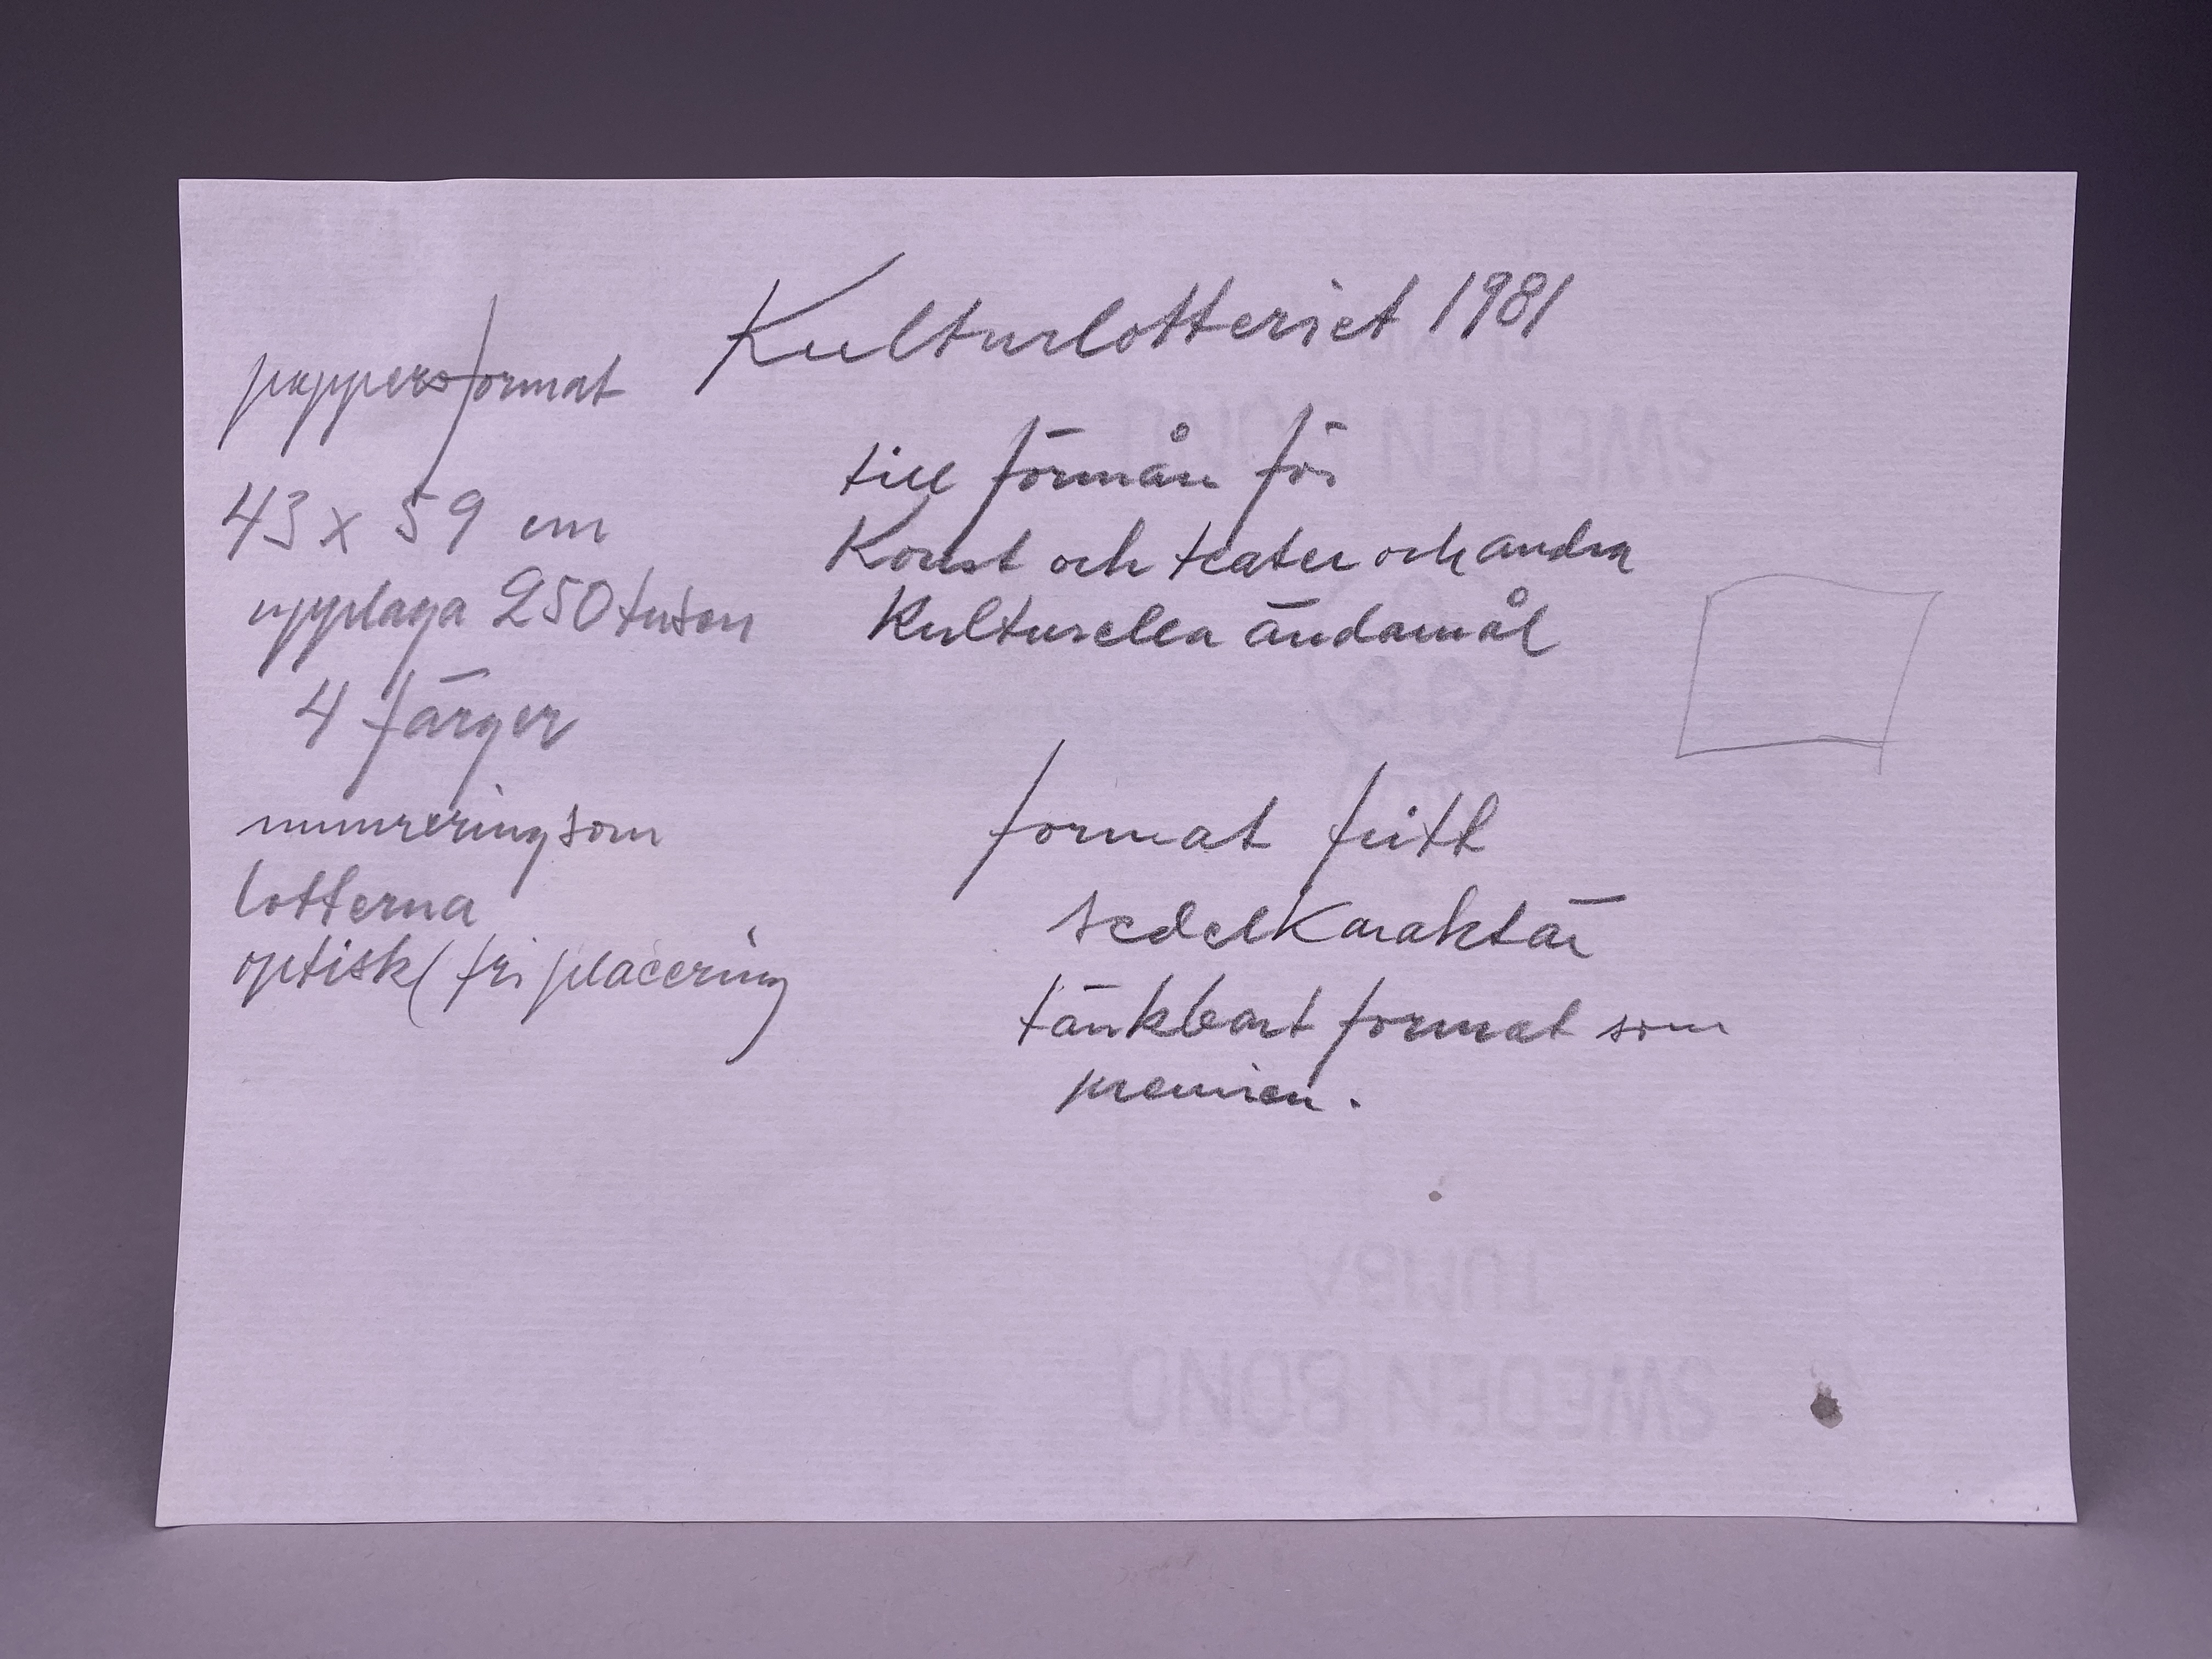 Kulturlotteriet 1981
till förmån för
Konst och teater och andra
Kulturella ändamål
format fritt
sedelkaraktär
tänkbart format som
premien.
pappersformat
43 x 59 cm
upplaga 250 tusen
4 färger
numrering som
lotterna
optisk (fri placering)
SWEDEN BOND
TUMBA
SWEDEN BOND